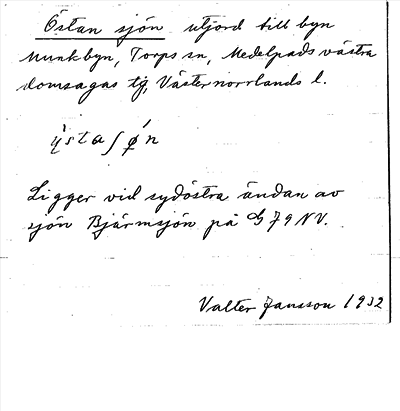 Östan sjön utjord till byn
Munkbyn, Torps sn, Medelpads västra
domsagas tg, Västernorrlands l.
ÿstaʃøn
Ligger vid sydöstra ändan av
sjön Bjärmsjön på G 79 NV.
Valter Jansson 1932